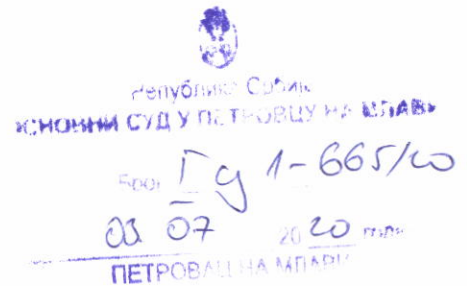 Република Србија
ОСНОВНИ СУД У ПЕТРОВЦУ НА МЛАВИ
Број I Су 1-665/20
03 07 20 20 године
ПЕТРОВАЦ НА МЛАВИ